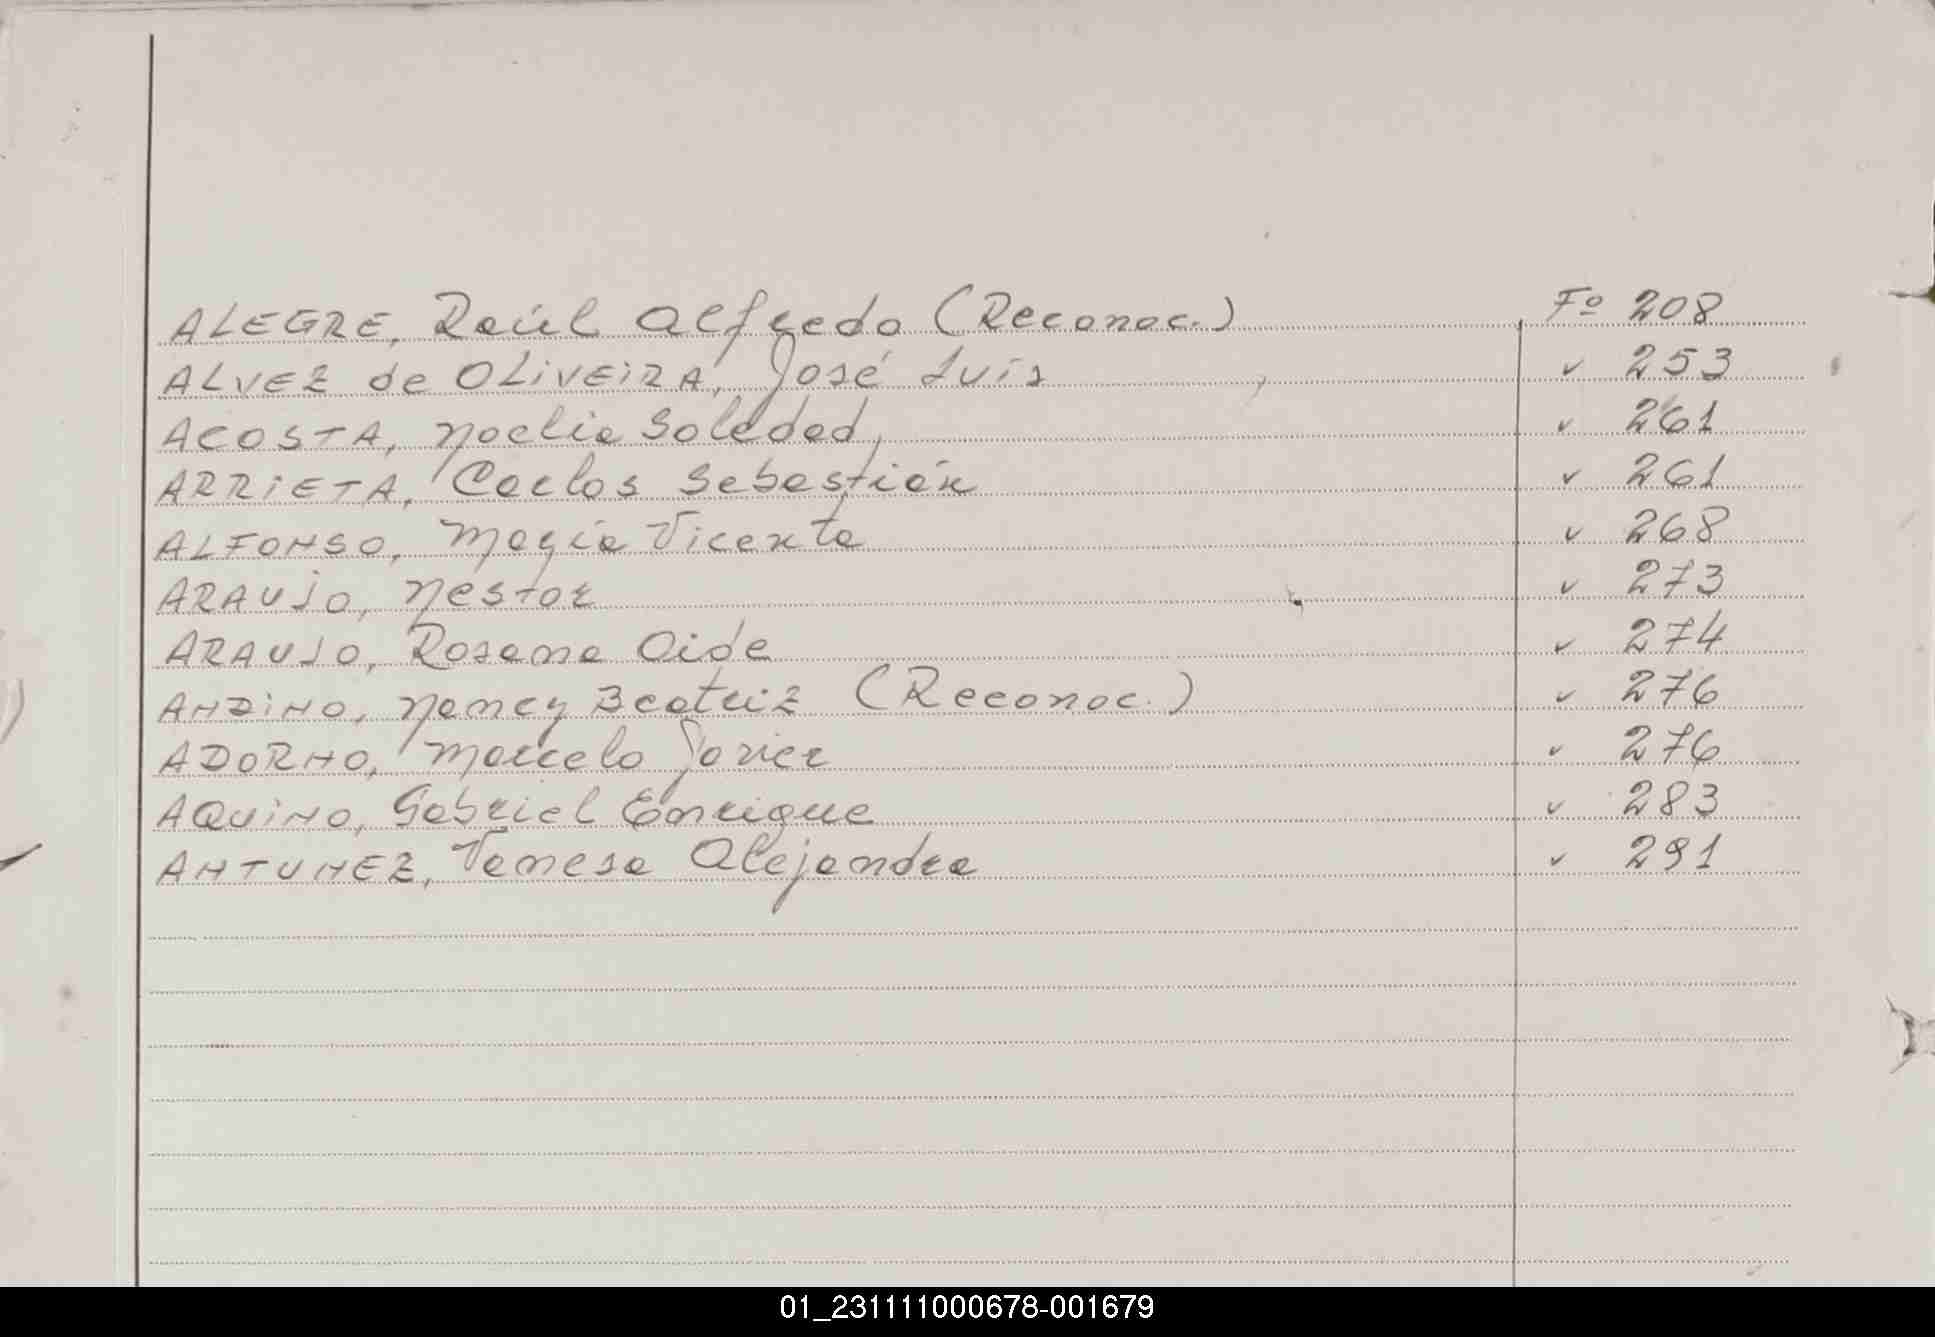 ALEGRE, Raúl Alfredo (Reconoc.) Fº 208
ALVEZ de OLiVEiRA, José Luis ✓ 253
ACOSTA, Noelia Soledad, ✓ 261
ARRiETA, Carlos Sebastián ✓ 261
ALFONSO, María Vicenta ✓ 268
ARAUJO, Nestor ✓ 273
ARAUJO, Rosana Oide ✓ 274
ANDiNO, Nancy Beatriz (Reconoc.) ✓ 276
ADORNO, Marcelo Javier ✓ 276
AQUiNO, Gabriel Enrique ✓ 283
ANTUNEZ, Vanesa Alejandra ✓ 291
01_231111000678-001679